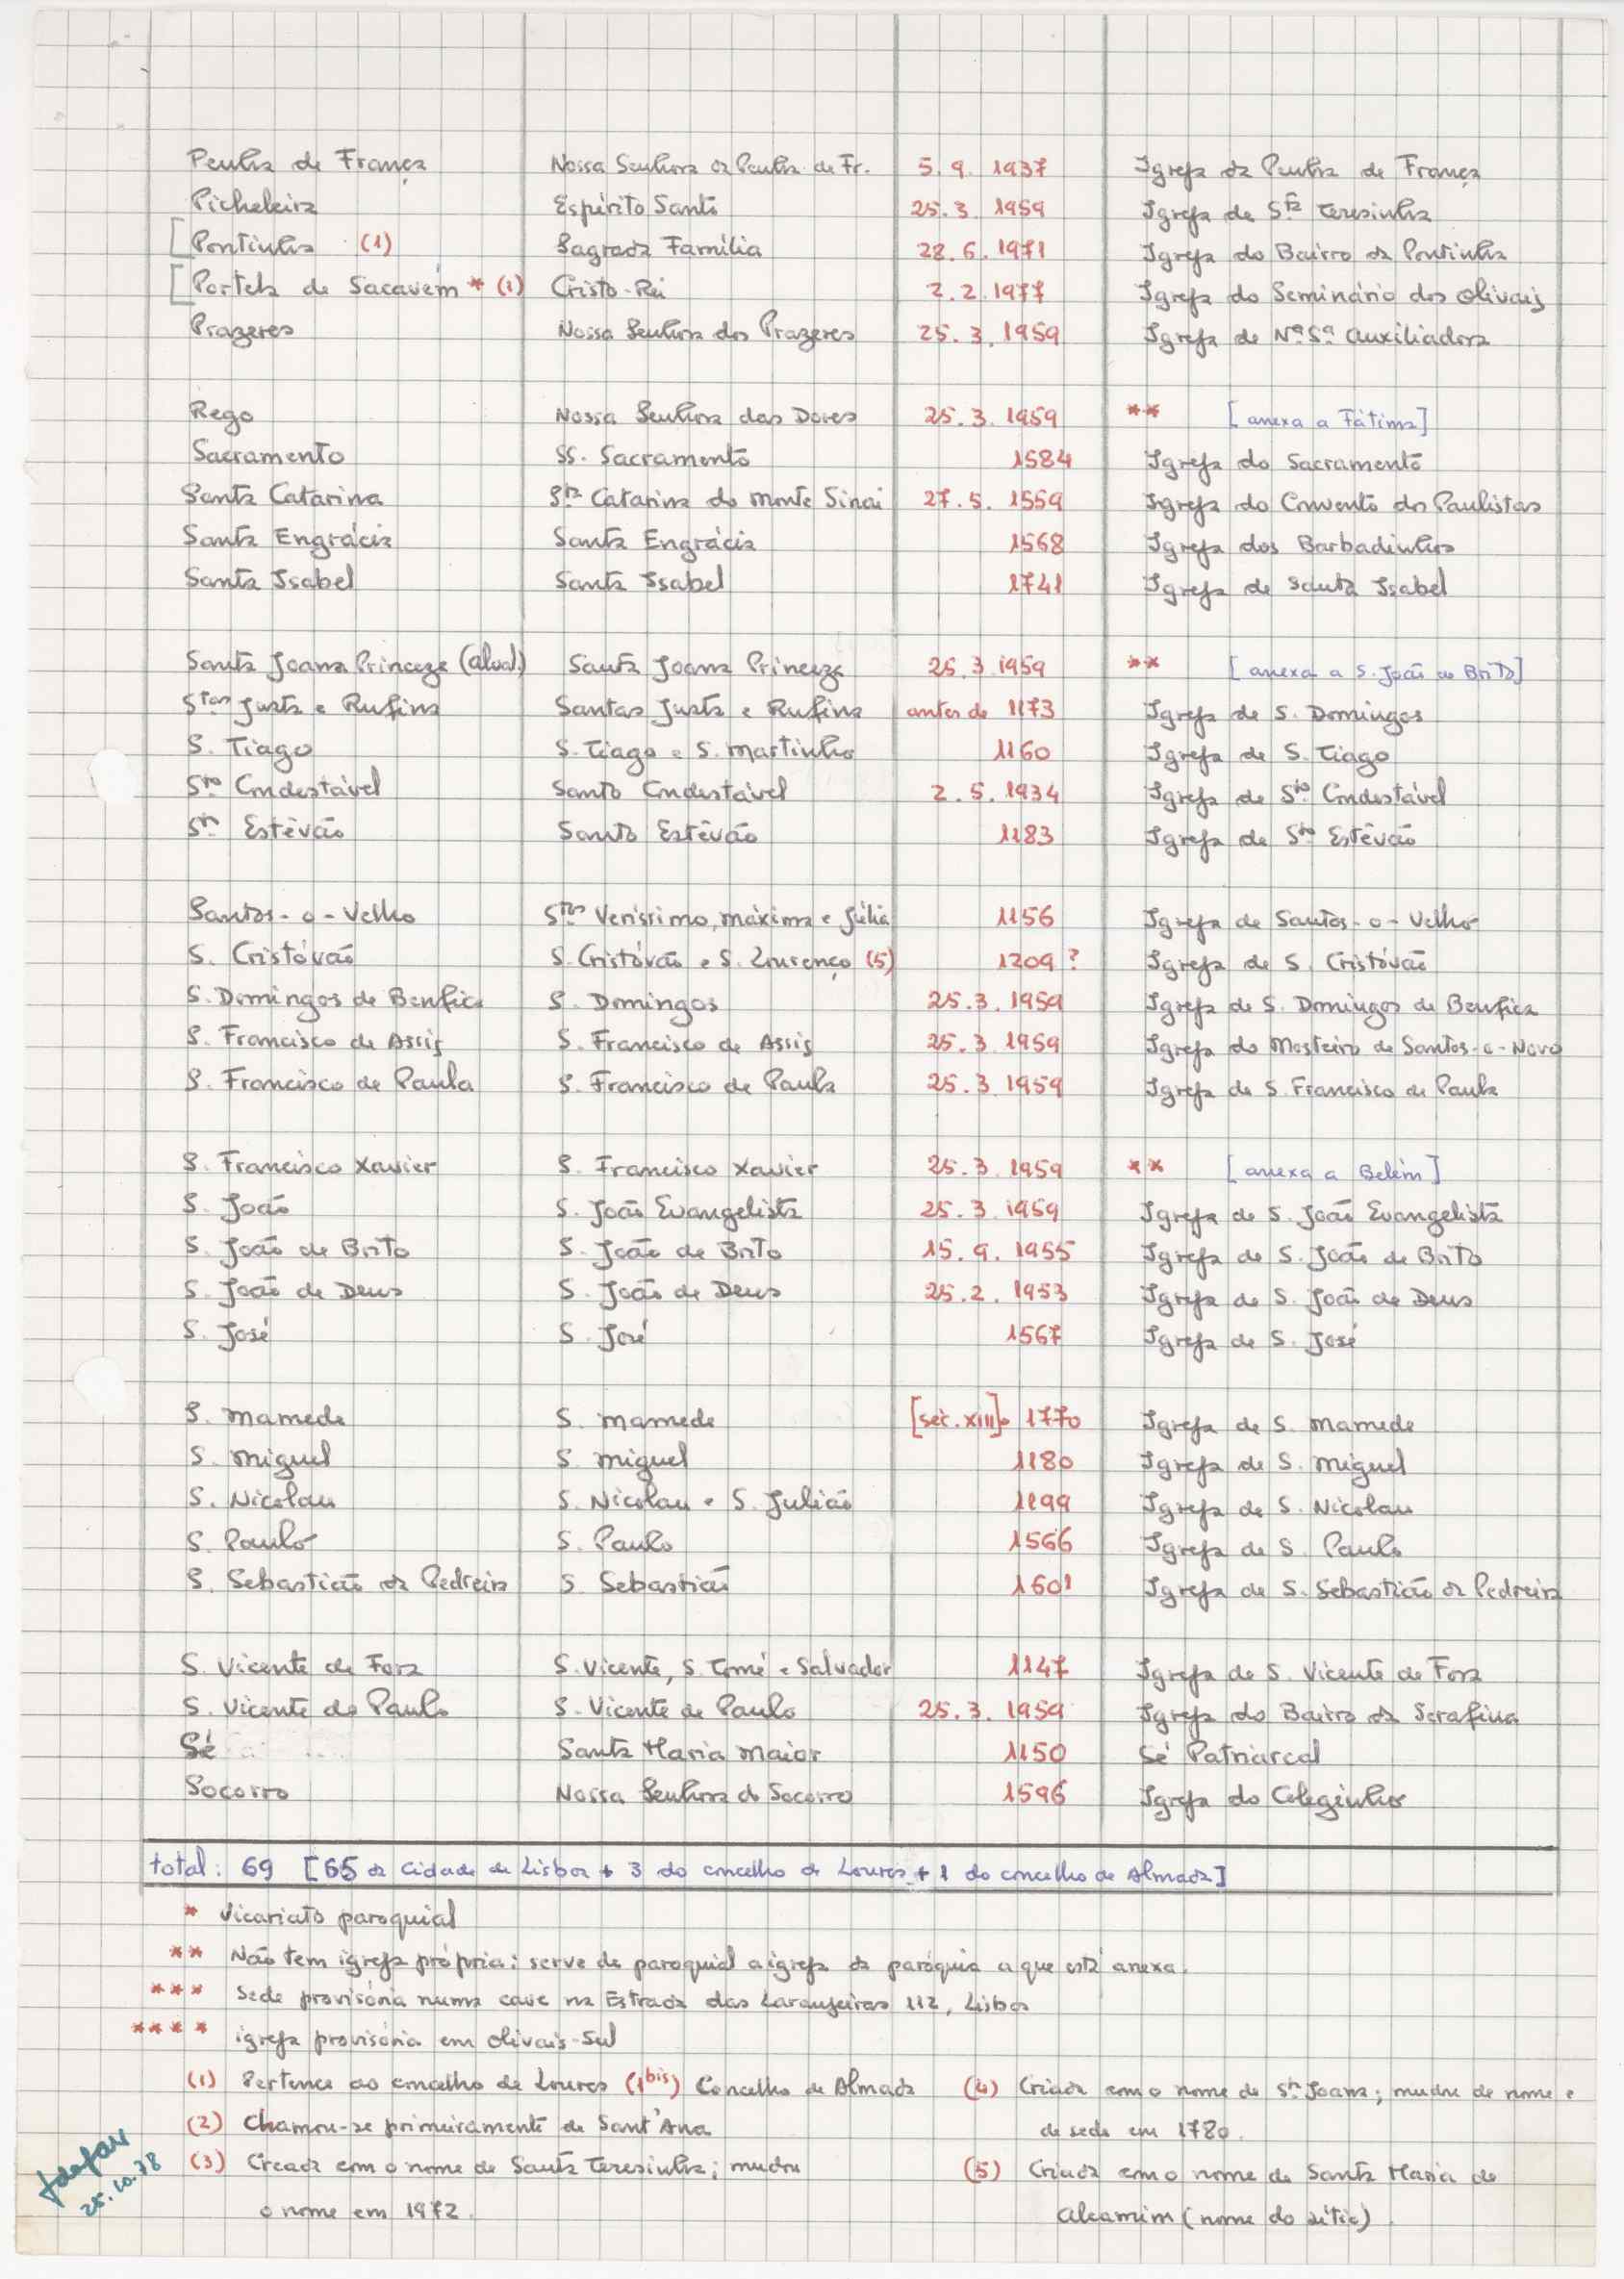 Penha de França Nossa Senhora da Penha de Fr. 5. 9. 1937 Igreja da Penha de França
Picheleira Espírito Santo 25. 3. 1959 Igreja de Stª Teresinha
[Pontinha (1) Sagrada Família 28. 6. 1971 Igreja do Bairro da Pontinha
[Portela de Sacavém * (1) Cristo-Rei 2. 2. 1977 Igreja do Seminário dos Olivais
Prazeres Nossa Senhora dos Prazeres 25. 3. 1959 Igreja de Nª Sª Auxiliadora
Rego Nossa Senhora das Dores 25. 3. 1959 ** [anexa a Fátima]
Sacramento SS. Sacramento 1584 Igreja do Sacramento
Santa Catarina Stª Catarina do Monte Sinai 27. 5. 1559 Igreja do Convento dos Paulistas
Santa Engrácia Santa Engrácia 1568 Igreja dos Barbadinhos
Santa Isabel Santa Isabel 1741 Igreja de Santa Isabel
Santa Joana Princeza (Alval.) Santa Joana Princeza 25. 3. 1959 ** [anexa a S. João de Brito]
Stas Justa e Rufina Santas Justa e Rufina antes de 1173 Igreja de S. Domingos
S. Tiago S. Tiago e S. Martinho 1160 Igreja de S. Tiago
Sto Condestável Santo Condestável 2. 5. 1934 Igreja de Sto Condestável
Sto Estêvão Santo Estêvão 1183 Igreja de Sto Estêvão
Santos-o-Velho Stos Veríssimo, Máxima e Júlia 1156 Igreja de Santos-o-Velho
S. Cristóvão S. Cristóvão e S. Lourenço (5) 1209 ? Igreja de S. Cristóvão
S. Domingos de Benfica S. Domingos 25. 3. 1959 Igreja de S. Domingos de Benfica
S. Francisco de Assis S. Francisco de Assis 25. 3. 1959 Igreja do Mosteiro de Santos-o-Novo
S. Francisco de Paula S. Francisco de Paula 25. 3. 1959 Igreja de S. Francisco de Paula
S. Francisco Xavier S. Francisco Xavier 25. 3. 1959 ** [anexa a Belém]
S. João S. João Evangelista 25. 3. 1959 Igreja de S. João Evangelista
S. João de Brito S. João de Brito 15. 9. 1955 Igreja de S. João de Brito
S. João de Deus S. João de Deus 25. 2. 1953 Igreja de S. João de Deus
S. José S. José 1567 Igreja de S. José
S. Mamede S. Mamede [séc. XIII] 1770 Igreja de S. Mamede
S. Miguel S. Miguel 1180 Igreja de S. Miguel
S. Nicolau S. Nicolau e S. Julião 1199 Igreja de S. Nicolau
S. Paulo S. Paulo 1566 Igreja de S. Paulo
S. Sebastião da Pedreira S. Sebastião 1601 Igreja de S. Sebastião da Pedreira
S. Vicente de Fora S. Vicente, S. Tomé e Salvador 1147 Igreja de S. Vicente de Fora
S. Vicente de Paulo S. Vicente de Paulo 25. 3. 1959 Igreja do Bairro da Serafina
Sé Santa Maria Maior 1150 Sé Patriarcal
Socorro Nossa Senhora do Socorro 1596 Igreja do Coleginho
total: 69 [65 da Cidade de Lisboa + 3 do concelho de Loures + 1 do concelho de Almada]
* Vicariato paroquial
** Não tem igreja própria; serve de paroquial a igreja da paróquia a que está anexa.
*** Sede provisória numa cave na Estrada das Laranjeiras 112, Lisboa
**** igreja provisória em Olivais-Sul
(1) Pertence ao concelho de Loures (1bis) Concelho de Almada
(2) Chamou-se primeiramente de Sant'Ana
(3) Creada com o nome de Santa Teresinha; mudou
o nome em 1972.
(4) Criada com o nome de Sta Joana; mudou de nome e
de sede em 1780.
(5) Criada com o nome de Santa Maria de
Alcamim (nome do sítio)
25.10.78